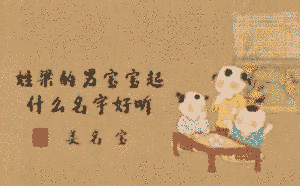 姓梁的男宝宝起
什么名字好听
美名宝